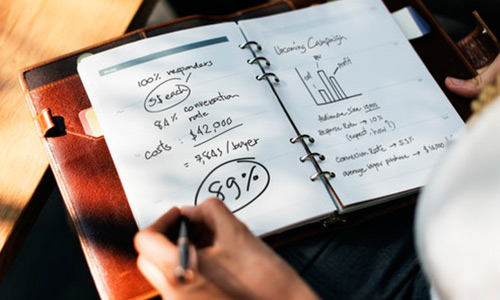 100% responders
$1 each
84% conversation
rate
costs: $42,000
= 784$/buyer
89%
Upcoming Campaign
profit
Audience size
Response Rate → 10%
(expect, how?)
Conversion Rate →
average buyer purchase →